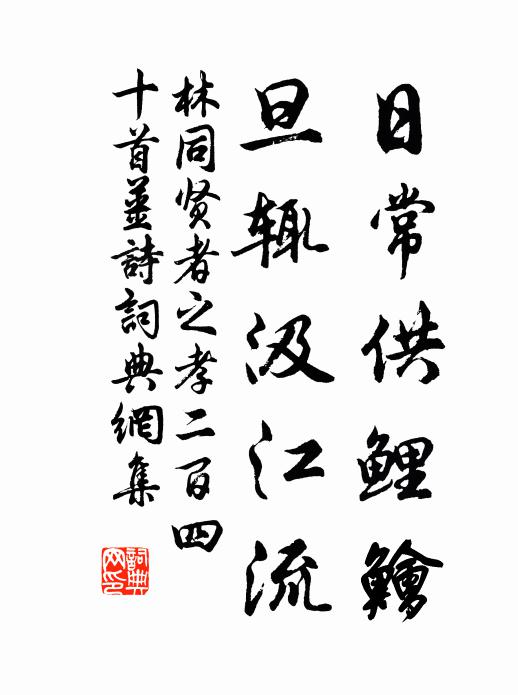 日常供鲤鱠
旦辄汲江流
林同贤者之孝二百四
十首姜詩詞典網集
詞典网印